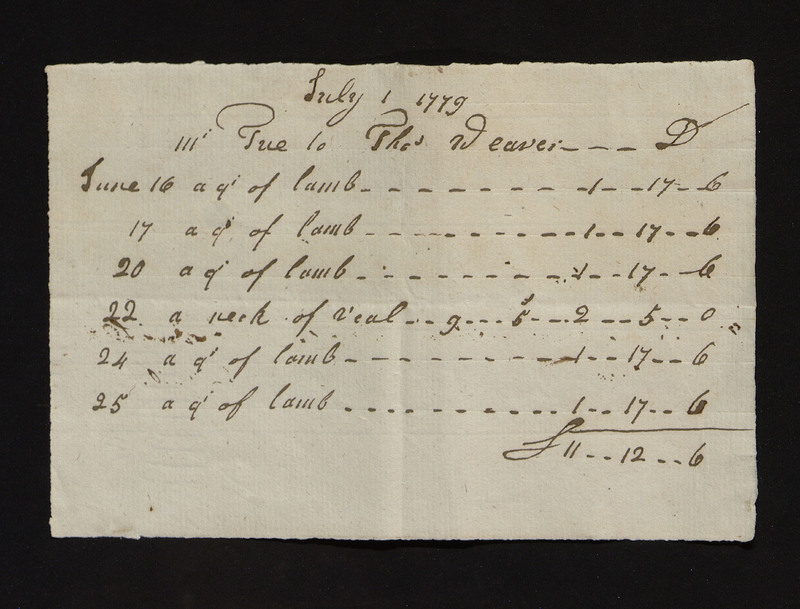 July 1 1779
mr Tue to Thos Weaver --- Dr
June 16 a qr of lamb --------- 1--17--6
17 a qr of lamb --------- 1--17--6
20 a qr of lamb --------- 1--17--6
22 a neck of veal -- 9 --- 5s -- 2 -- 5 -- 0
24 a qr of lamb --------- 1--17--6
25 a qr of lamb --------- 1--17--6
£ 11--12--6